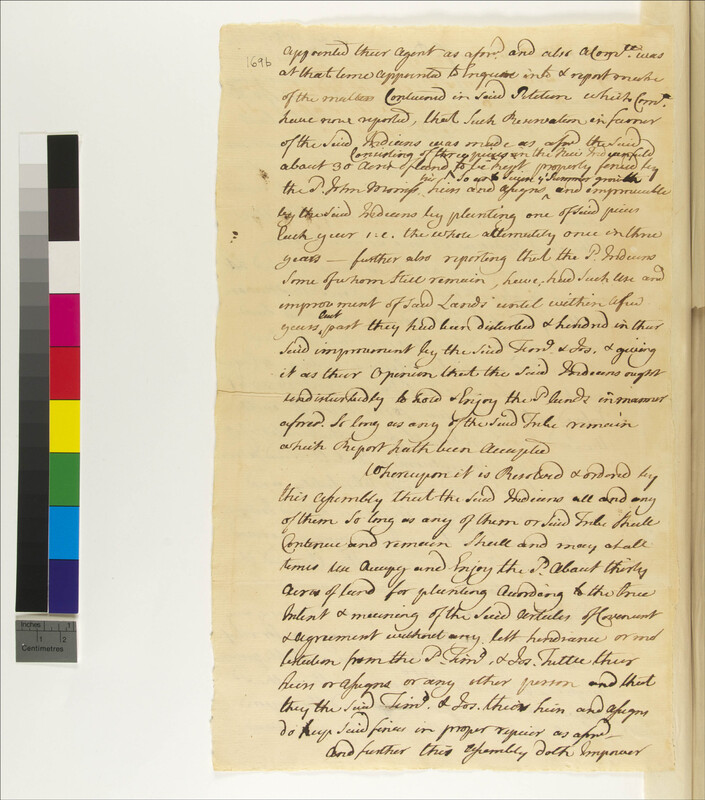 169b
appointed their Agent as aforsd. and also a Comtee. was
at that time appointed to Enquire into & report make
of the matters Contained in Said Petition which Comtt.
have now reported, that Such Reservation in favour
of the Said Indians was made as aforsd the Said
Consisting of three pieces in the New Indian field
about 30 Acres of land to be kept properly fenced by
the P. John Morris, heirs and assigns, and improvable
by the Said Indians by planting one of Said pieces
Each year i.e. the whole alternately once in three
years — further also reporting that the P. Indians
Some of whom Still remain, have, had Such Use and
improvment of Said Lands until within a few
last
years past they had been disturbed & hindred in their
Said improvment by the Said Timo. & Jos. & giving
it as their Opinion that the Said Indians ought
undisturbedly to hold & Enjoy the P. Lands in manner
aforesd. So long as any of the Said Tribe remain
which Report hath been Accepted
Whereupon it is Resolved & ordred by
this assembly that the Said Indians all and any
of them So long as any of them or Said Tribe Shall
Continue and remain Shall and may at all
times Use Occupy and Enjoy the P. About thirty
Acres of land for planting According to the true
Intent & meaning of the Said Articles of Covenant
& agreement without any lett hindrance or mo
lestation from the P. Timo. & Jos. Tuttle their
heirs or assigns or any other person and that
they the Said Timo. & Jos. their heirs and assigns
do keep Said fences in proper repair as aforsd
And further this assembly doth Impower